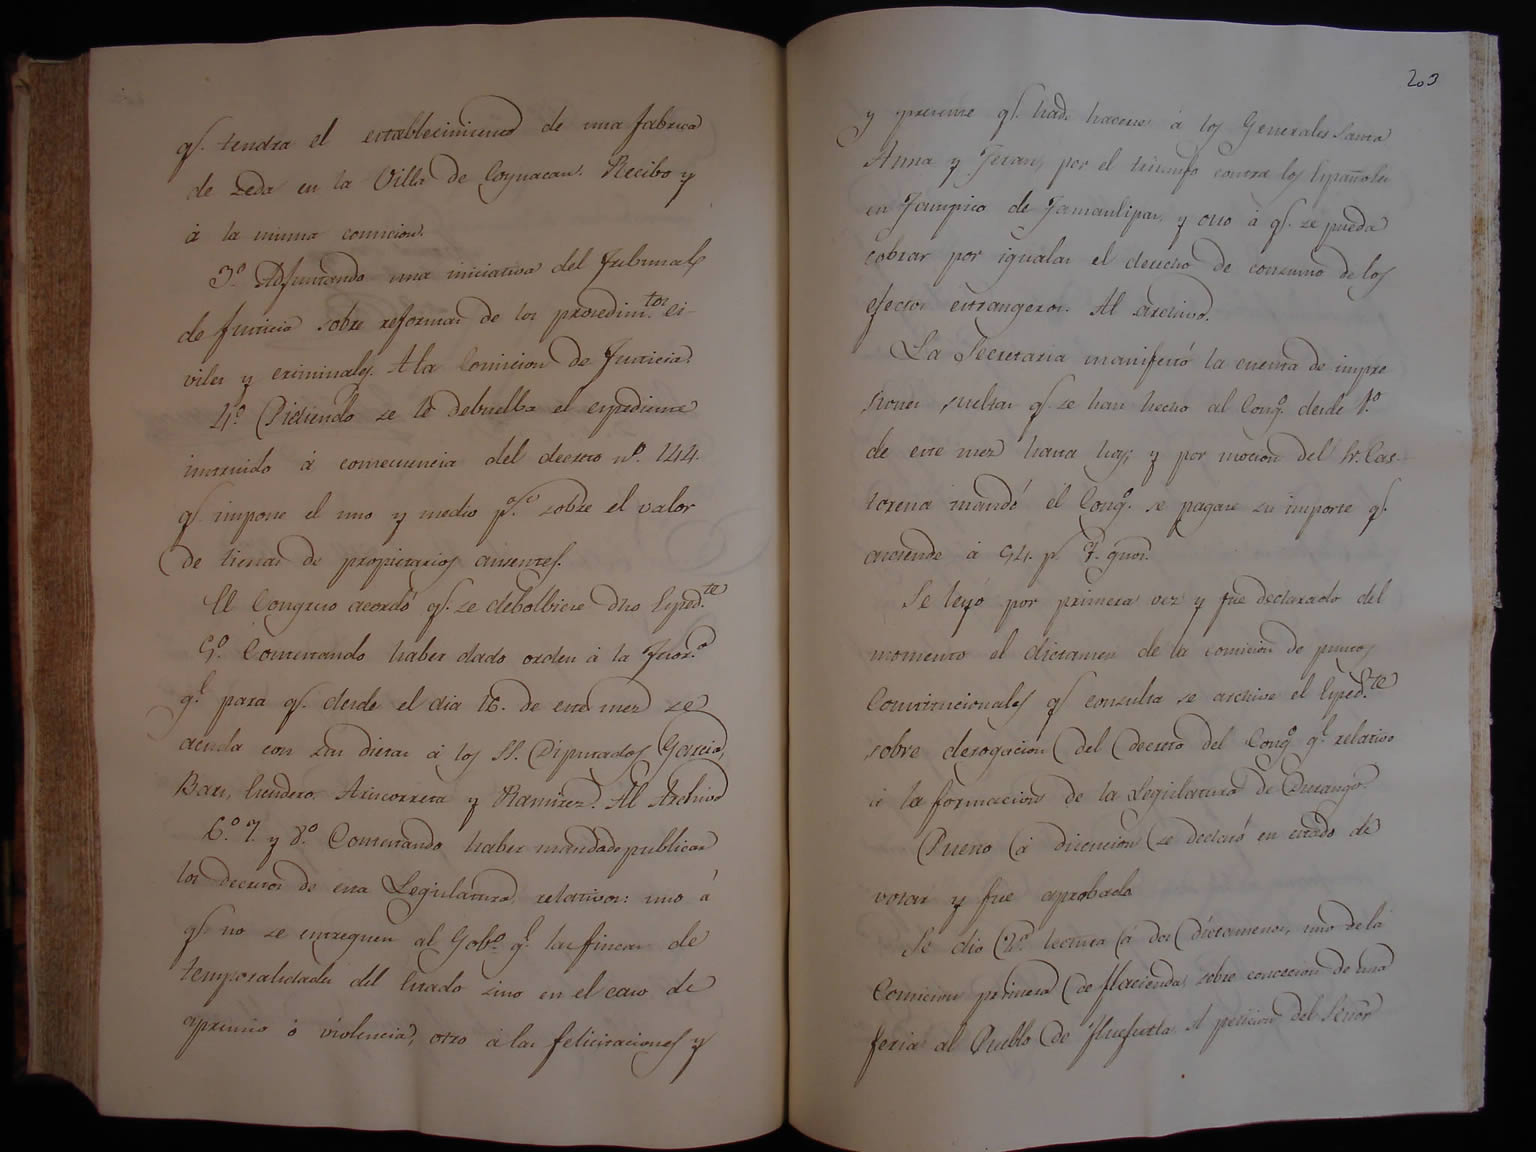 q.ᵉ tendra el establecimiento de una fabrica
de seda en la Villa de Coyuacan. Recibo y
á la misma comicion.
3.º Adjuntando una iniciativa del Tribunal
de Justicia sobre reformas de los prosedim.tos ci-
viles y criminales. A la Comicion de Justicia.
4.º Pidiendo se le debuelba el expediente
instruido á consecuencia del decreto nº. 144.
q.ᵉ impone el uno y medio p.% sobre el valor
de tierras de propietarios ausentes.
El Congreso acordó q.ᵉ se debolbiese dho Exped.te
5.º Contestando haber dado orden á la Tesor.ª
g.l para q.ᵉ desde el dia 16. de este mes se
acuda con sus dietas á los SS. Diputados Garcia,
Bars, Escudero, Ariscorreta y Ramirez. Al Archivo
6.º 7. y 8.º Contestando haber mandado publicar
los decretos de esta Legislatura relativos: uno á
q.ᵉ no se entreguen al Gob.º g.l las fincas de
temporalidades del Estado sino en el caso de
apremio ó violencia, otro á las felicitaciones y
203
y presente q.ᵉ had. hacerse á los Generales Santa
Anna y Teran, por el triunfo contra los Españoles
en Tampico de Tamaulipas, y otro á q.ᵉ se pueda
cobrar por igualas el derecho de consumo de los
efectos estrangeros. Al archivo.
La Secretaria manifestó la cuenta de impre
siones sueltas q.ᵉ se han hecho al Cong.º desde 1.º
de este mes hasta hoy; y por mocion del Sr. Cas-
torena mandó el Cong.º se pagase su importe q.ᵉ
asciende á 94. p.s 7. gnos.
Se leyó por primera vez y fue declarado del
momento el dictamen de la comicion de puntos
Constitucionales q.ᵉ consulta se archive el Exped.te
sobre derogacion del Decreto del Cong.º g.l relativo
á la formacion de la Legislatura de Durango.
Puesto á discucion se declaró en estado de
votar y fue aprobado
Se dio 2.ª lectura á dos Dictamenes, uno de la
Comicion primera de Hacienda, sobre concecion de una
feria al Pueblo de Huejutla á peticion del Señor